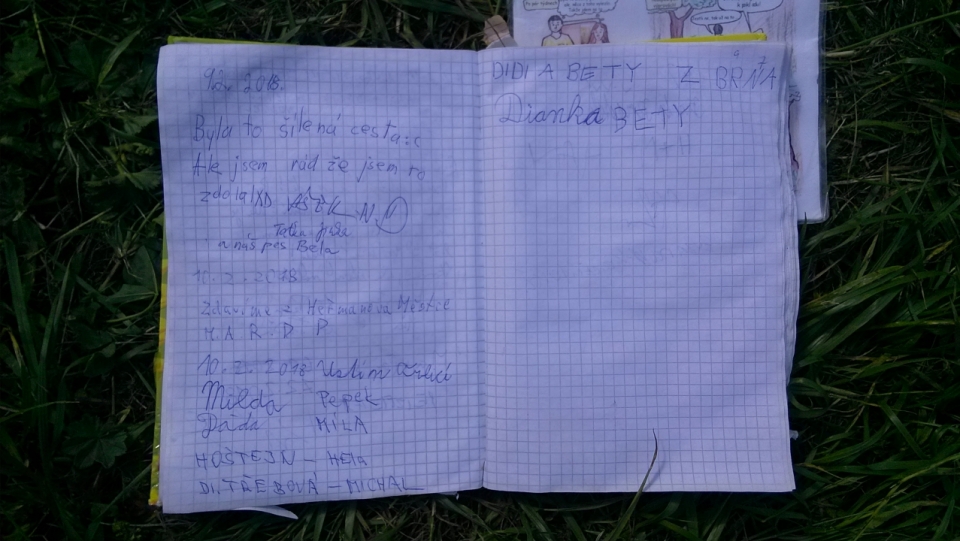 9.7. 2018.
Byla to šílená cesta :c
Ale jsem rád že jsem to
zdolal XD
a náš pes Bela
10.7.2018
Zdravíme z Heřmanova Městce
M A R D P
10.7.2018 Ústí n Orlicí
Milda Pepek
Dáda MÍLA
HOŠTEJN - Hela
DL. TŘEBOVÁ - MICHAL
DIDI A BETY Z BRŇA
Dianka BETY